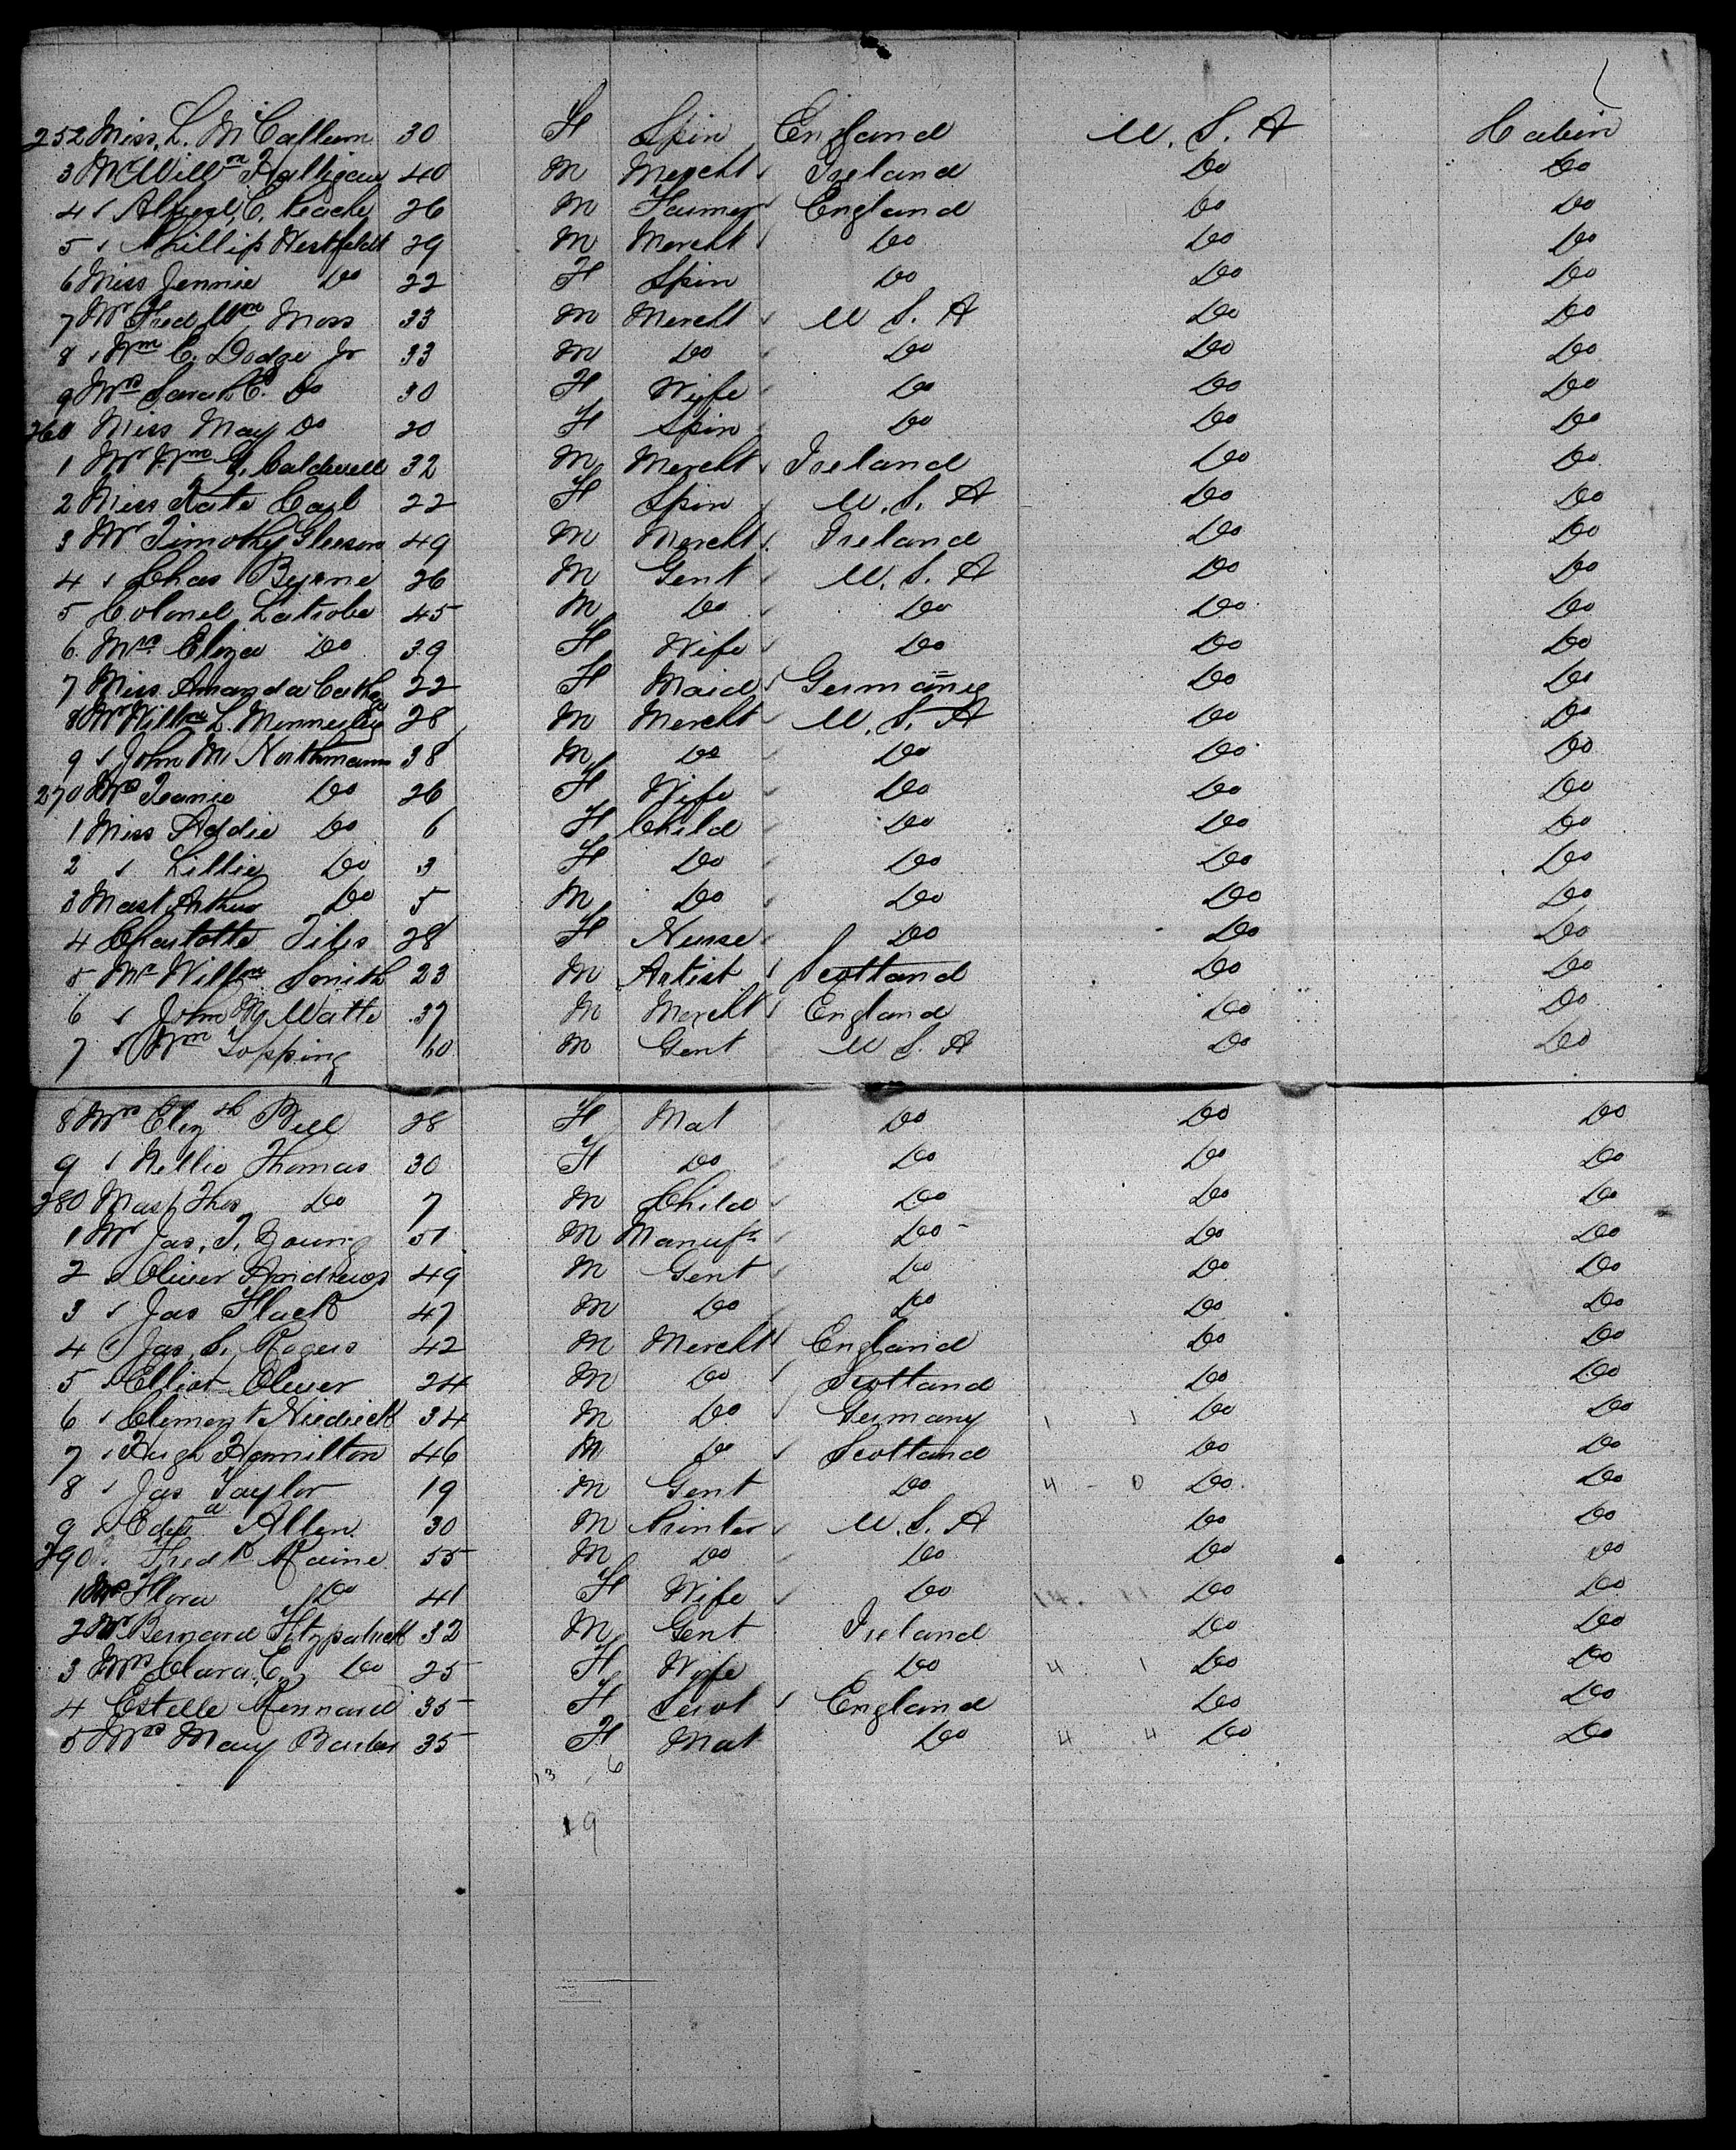 252 Miss, L. McCallum 30 F Spin England U. S. A Cabin
3 Mr Willm Halligan 40 M Mercht Ireland Do Do
4 " Alfred C. Peache 26 M Farmer England Do Do
5 " Phillip Westfeldt 29 M Mercht Do Do Do
6 Miss Jennie Do 22 F Spin Do Do Do
7 Mr Fred Wm Moss 33 M Mercht U S. A Do Do
8 " Wm E. Dodge Jr 33 M Do Do Do Do
9 Mrs Sarah Do 30 F Wife Do Do Do
260 Miss May Do 20 F Spin Do Do Do
1 Mr Wm Caldwell 32 M Mercht Ireland Do Do
2 Miss Kate 22 F Spin U. S. A Do Do
3 Mr Timothy Gleeson 49 M Mercht Ireland Do Do
4 " Chas Byrne 26 M Gent U. S. A Do Do
5 Colonel Latrobe 45 M Do Do Do Do
6 Mrs Eliza Do 39 F Wife Do Do Do
7 Miss Amanda 22 F Maid Germany Do Do
8 Mr Willm L. 28 M Mercht U. S. A Do Do
9 " John M Northmann 38 M Do Do Do Do
270 Mrs Jeanie Do 26 F Wife Do Do Do
1 Miss Addie Do 6 F Child Do Do Do
2 " Lillie Do 3 F Do Do Do Do
3 Mast Arthur Do 5 M Do Do Do Do
4 Charlotte 28 F Nurse Do Do Do
5 Mr Willm Smith 23 M Artist Scotland Do Do
6 " John Watts 37 M Mercht England Do Do
7 " Wm Topping 60 M Gent U S. A Do Do
8 Mrs Elizth Bell 28 F Mat Do Do Do
9 " Nellie Thomas 30 F Do Do Do Do
280 Mast Thos Do 7 M Child Do Do Do
1 Mr Jas, T, Young 51 M Manufr Do Do Do
2 " Oliver Andrews 49 M Gent Do Do Do
3 " Jas Flack 47 M Do Do Do Do
4 " Jas, S. Rogers 42 M Mercht England Do Do
5 " Elliot Oliver 24 M Do Scotland Do Do
6 " Clement Niedieck 34 M Do Germany Do Do
7 " Hugh Hamilton 46 M Do Scotland Do Do
8 " Jas Taylor 19 M Gent Do 4 - 0 Do Do
9 " Edwd Allen 30 M Printer U. S. A Do Do
290 " Fredk Raine 55 M Do Do Do Do
1 Mrs Flora Do 41 F Wife Do 14. 11 Do Do
2 Mr Bernard Fitzpatrick 32 M Gent Ireland Do Do
3 Mrs Clara C. Do 25 F Wife Do 4 1 Do Do
4 Estelle Rennard 35 F Servt England Do Do
5 Mrs Mary Barber 35 F Mat Do 4 4 Do Do
13 6
19